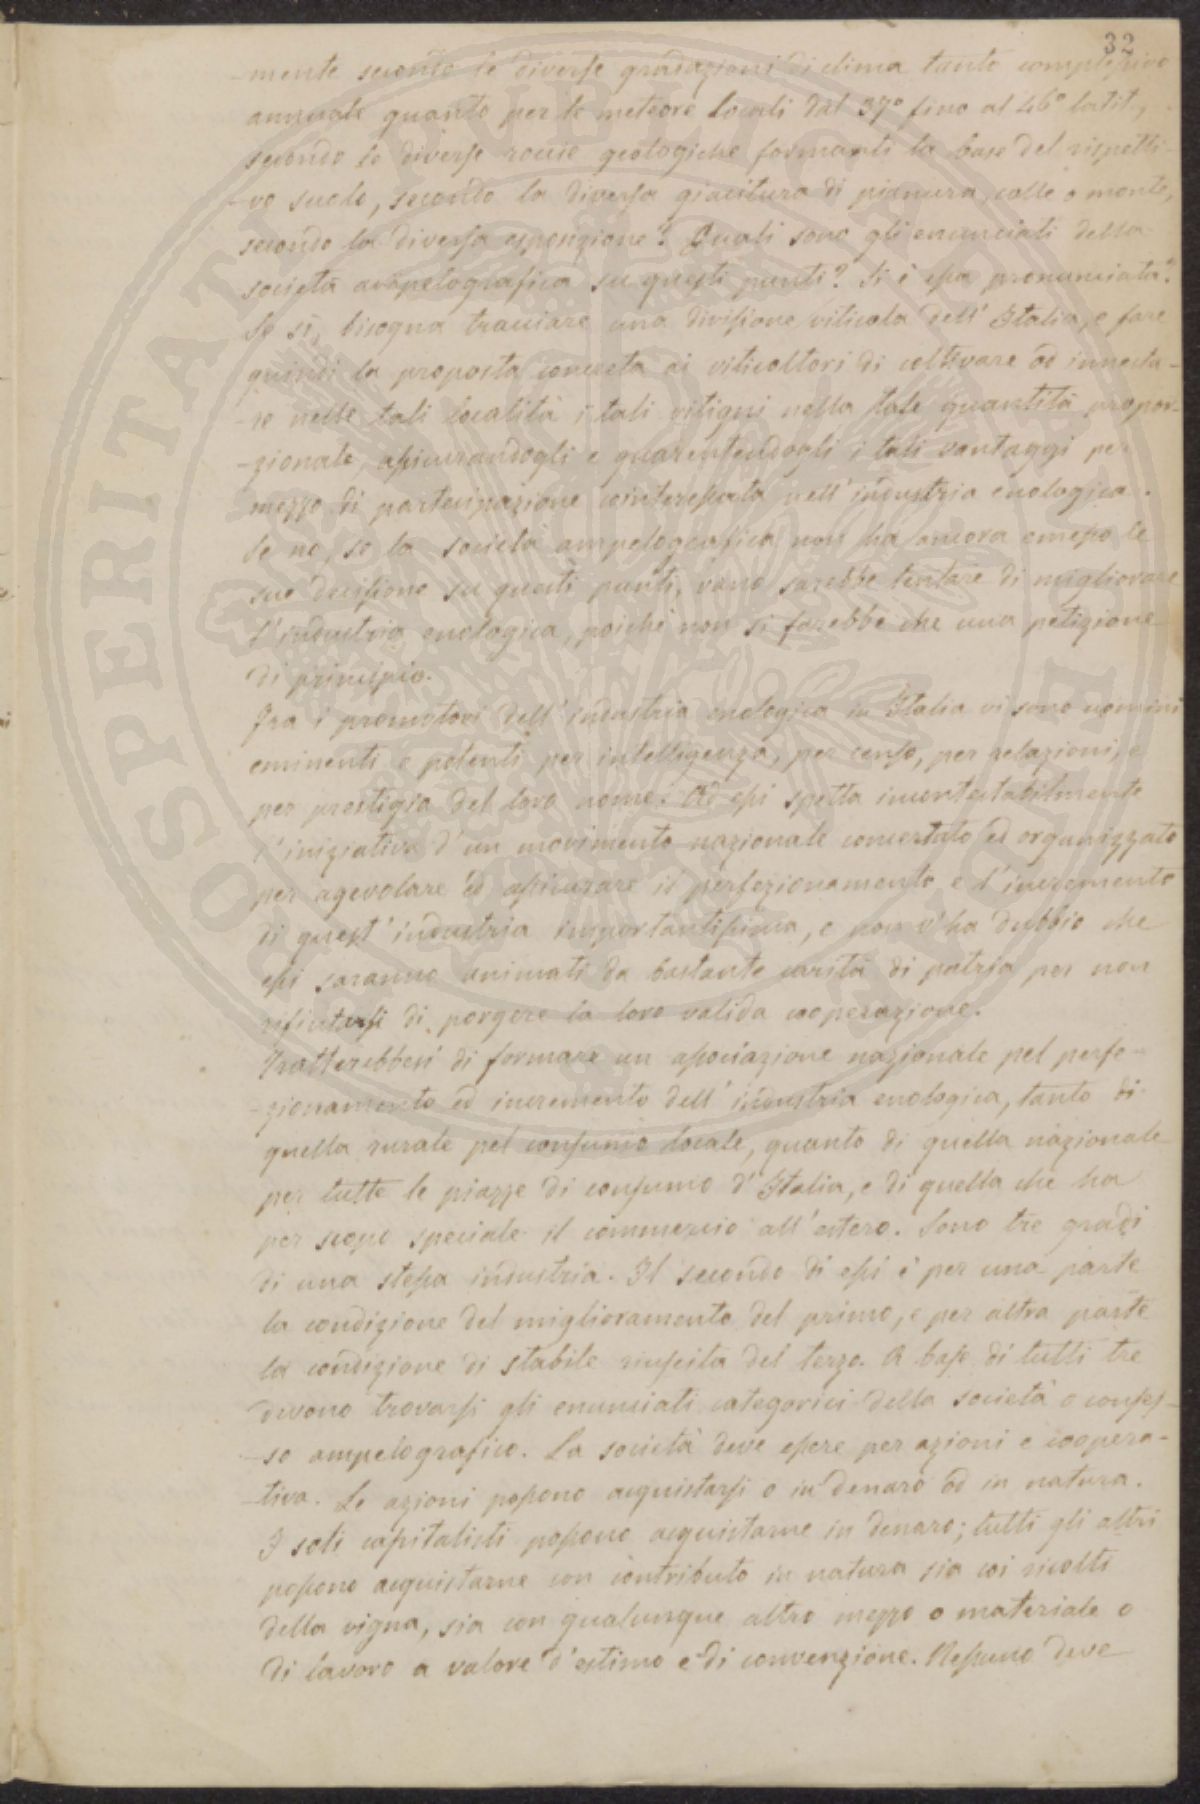 32
-mente secondo le diverse gradazioni di clima tanto complessivo
annuale quanto per le meteore locali dal 37° fino al 46° latit.,
secondo le diverse roccie geologiche formanti la base del rispetti-
-vo suolo, secondo la diversa giacitura di pianura, colle o monte,
secondo la diversa esposizione? Quali sono gli enunciati della
società ampelografica su questi punti? Si è essa pronunciata?
Se sì, bisogna tracciare una divisione viticola dell'Italia, e fare
quindi la proposta concreta ai viticoltori di coltivare od innesta-
-re nelle tali località i tali vitigni nella tale quantità propor-
-zionale, assicurandogli e guarentendogli i tali vantaggi per
mezzo di partecipazione cointeressata nell'industria enologica.
Se no, se la società ampelografica non ha ancora emesso le
sue decisione su questi punti, vano sarebbe tentare di migliorare
l'industria enologica, poichè non si farebbe che una petizione
di principio.
Fra i promotori dell'industria enologica in Italia vi sono uomini
eminenti e potenti per intelligenza, per censo, per relazioni, e
per prestigio del loro nome. Ad essi spetta incontestabilmente
l'iniziativa d'un movimento nazionale concertato ed organizzato
per agevolare ed assicurare il perfezionamento e l'incremento
di quest'industria importantissima, e non v'ha dubbio che
essi saranno animati da bastante carità di patria per non
rifiutarsi di porgere la loro valida cooperazione.
Tratterebbesi di formare un associazione nazionale pel perfe-
-zionamento ed incremento dell'industria enologica, tanto di
quella rurale pel consumo locale, quanto di quella nazionale
per tutte le piazze di consumo d'Italia, e di quella che ha
per scopo speciale il commercio all'estero. Sono tre gradi
di una stessa industria. Il secondo di essi è per una parte
la condizione del miglioramento del primo, e per altra parte
la condizione di stabile riuscita del terzo. A base di tutti tre
devono trovarsi gli enunciati categorici della società o conses-
-so ampelografico. La società deve essere per azioni e coopera-
-tiva. Le azioni possono acquistarsi o in denaro od in natura.
I soli capitalisti possono acquistarne in denaro; tutti gli altri
possono acquistarne con contributo in natura sia coi ricolti
della vigna, sia con qualunque altro mezzo o materiale o
di lavoro a valore d'estimo e di convenzione. Nessuno deve
PROSPERITATI PUBLICAE